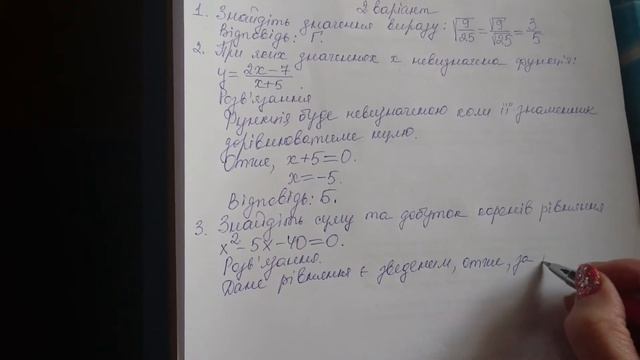 2 варіант
1. Знайдіть значення виразу: √9/25 = √9/√25 = 3/5
Відповідь: Г.
2. При яких значеннях x невизначена функція:
y = 2x-7/x+5.
Розв'язання
Функція буде невизначеною коли її знаменник
дорівнюватиме нулю.
Отже, x+5=0.
x=-5.
Відповідь: Б.
3. Знайдіть суму та добуток коренів рівняння
x²-5x-40=0.
Розв'язання.
Дане рівняння є зведеним, отже, за